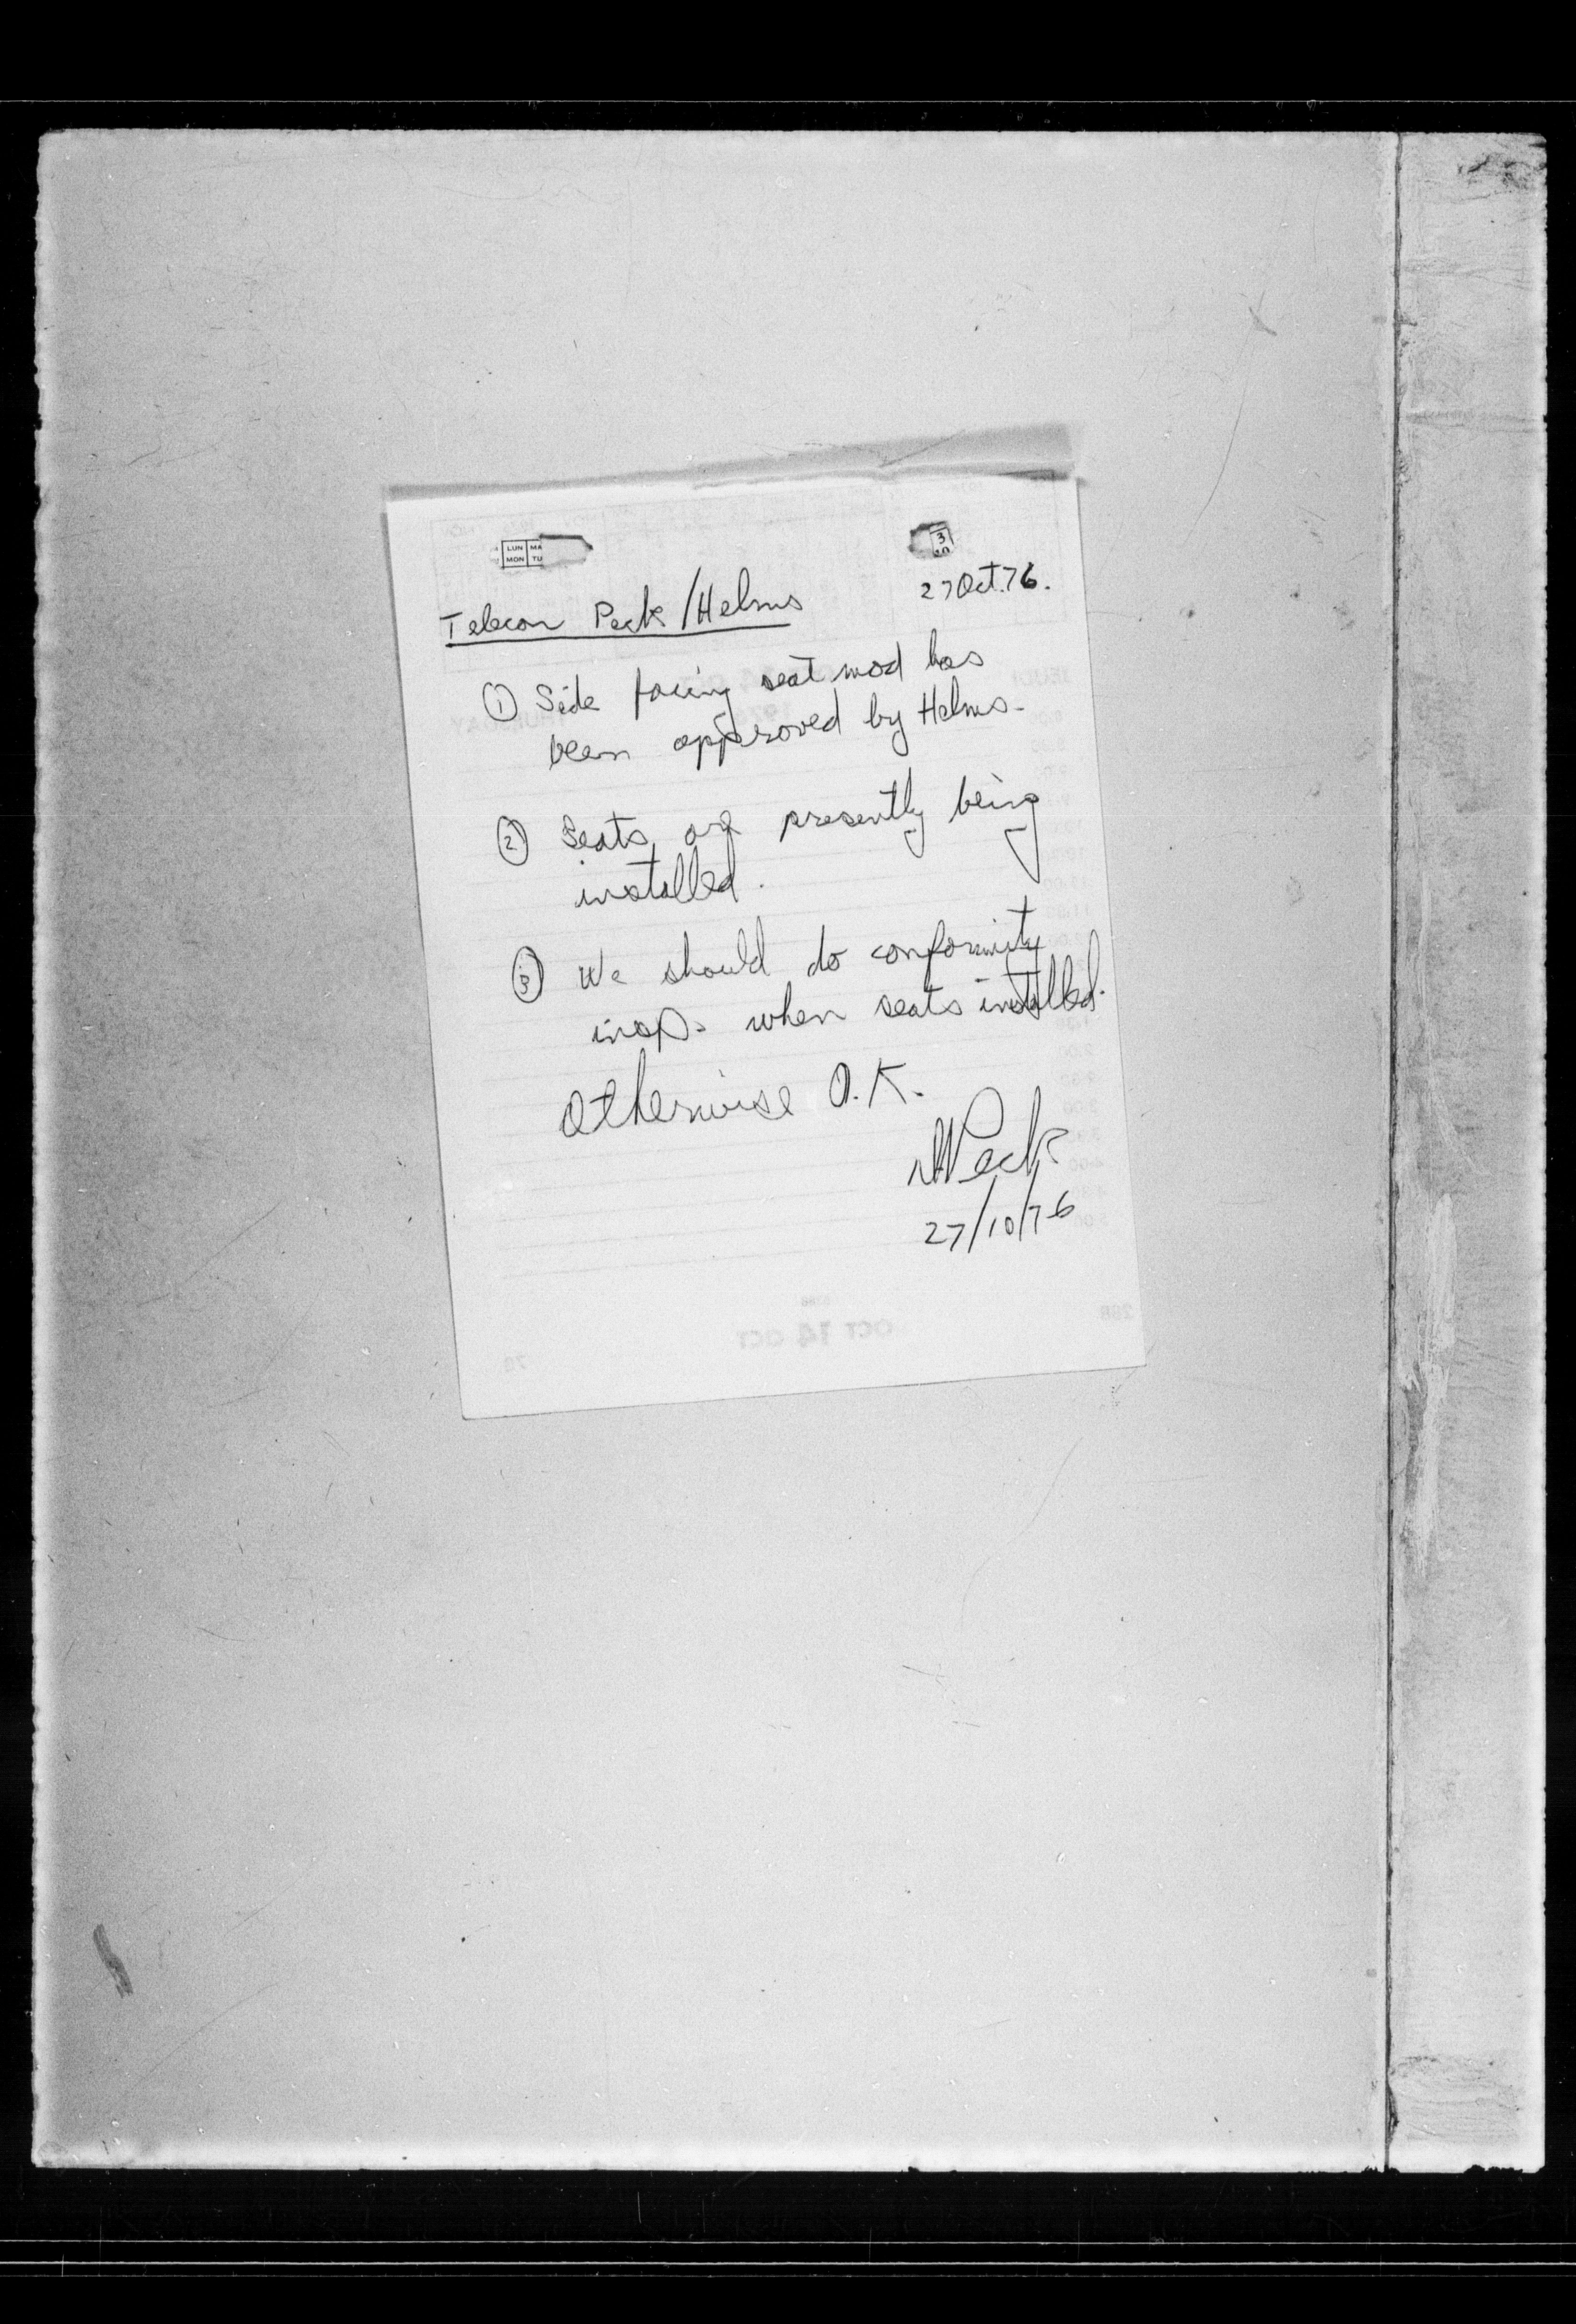 LUN MA
MON TU
3
10
27 Oct. 76.
Telecon Peck / Helms
① Side facing seat mod has
been approved by Helms.
② Seats are presently being
installed.
③ We should do conformity
insp. when seats installed.
Otherwise O.K.
Peck
27/10/76
OCT 14 OCT